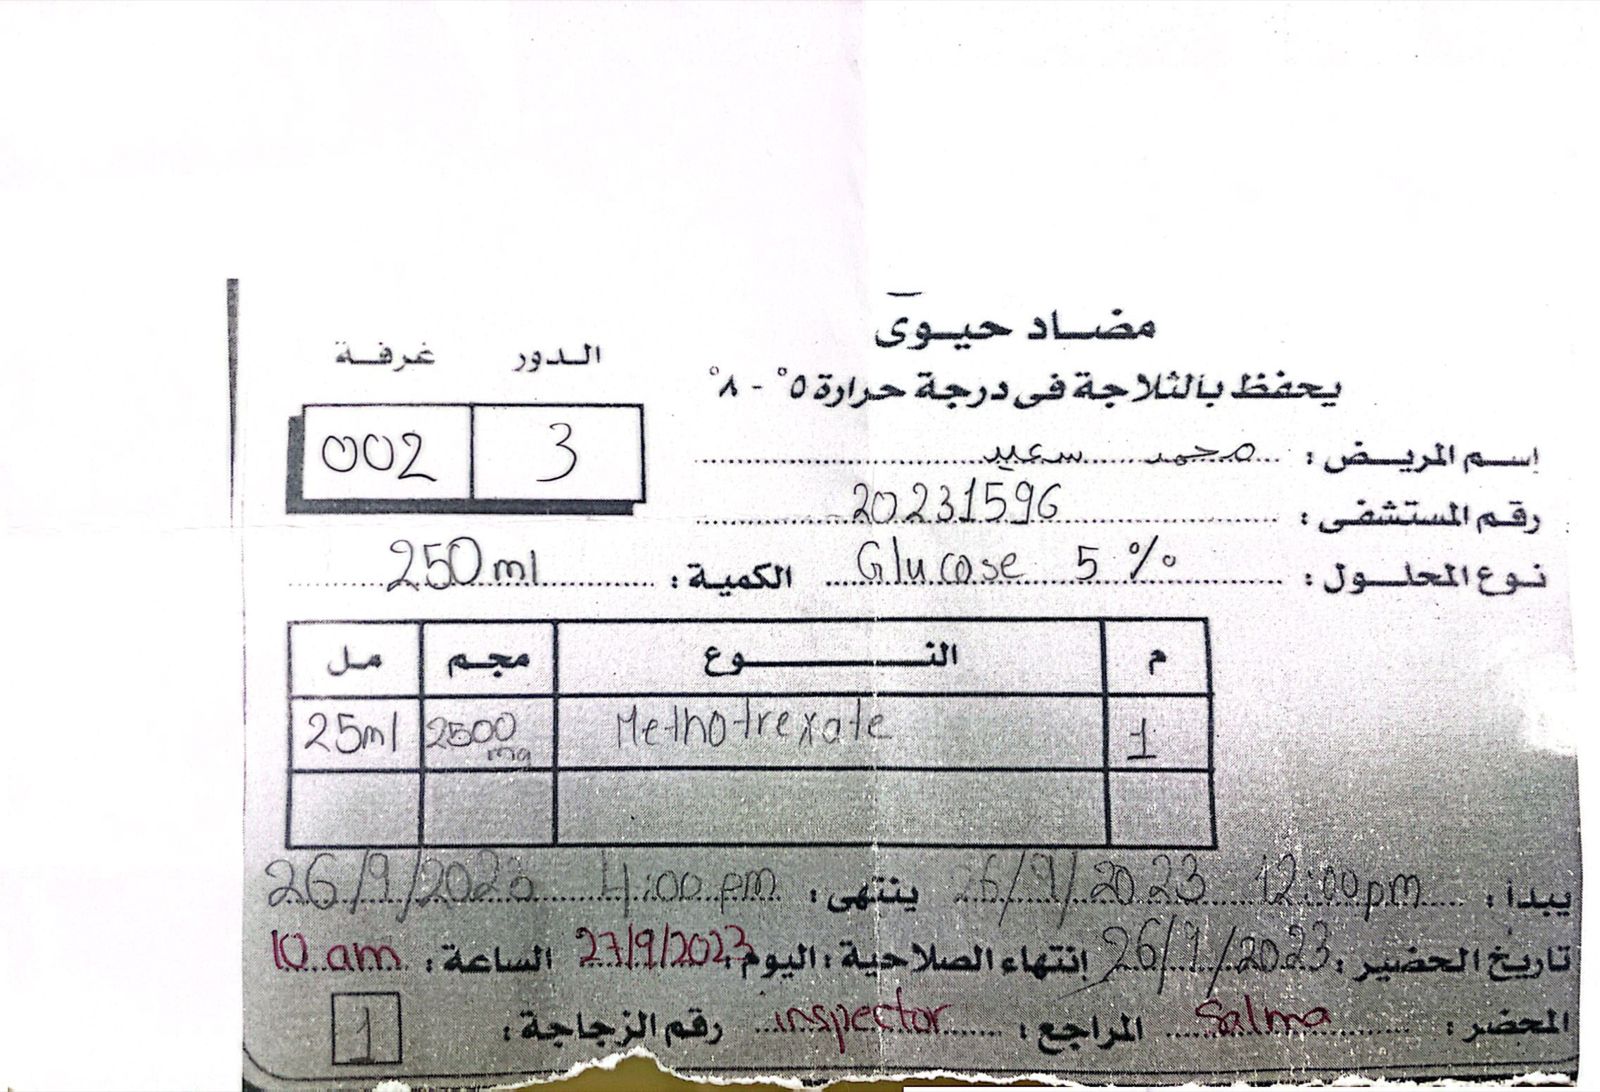 مضاد حيوى
يحفظ بالثلاجة فى درجة حرارة ٥° - ٨°
الدور غرفة
3 002
إسم المريض : محمد سعيد
رقم المستشفى : 20231596
نوع المحلول : Glucose 5 % الكمية : 250 ml
م النوع مجم مل
1 Methotrexate 2500 mg 25ml
يبدا : 26/9/2023 12:00 pm ينتهى : 26/9/2023 4:00 pm
تاريخ الحضير : 26/9/2023 إنتهاء الصلاحية : اليوم : 27/9/2023 الساعة : 10 am
المحضر : Salma المراجع : inspector رقم الزجاجة : 1